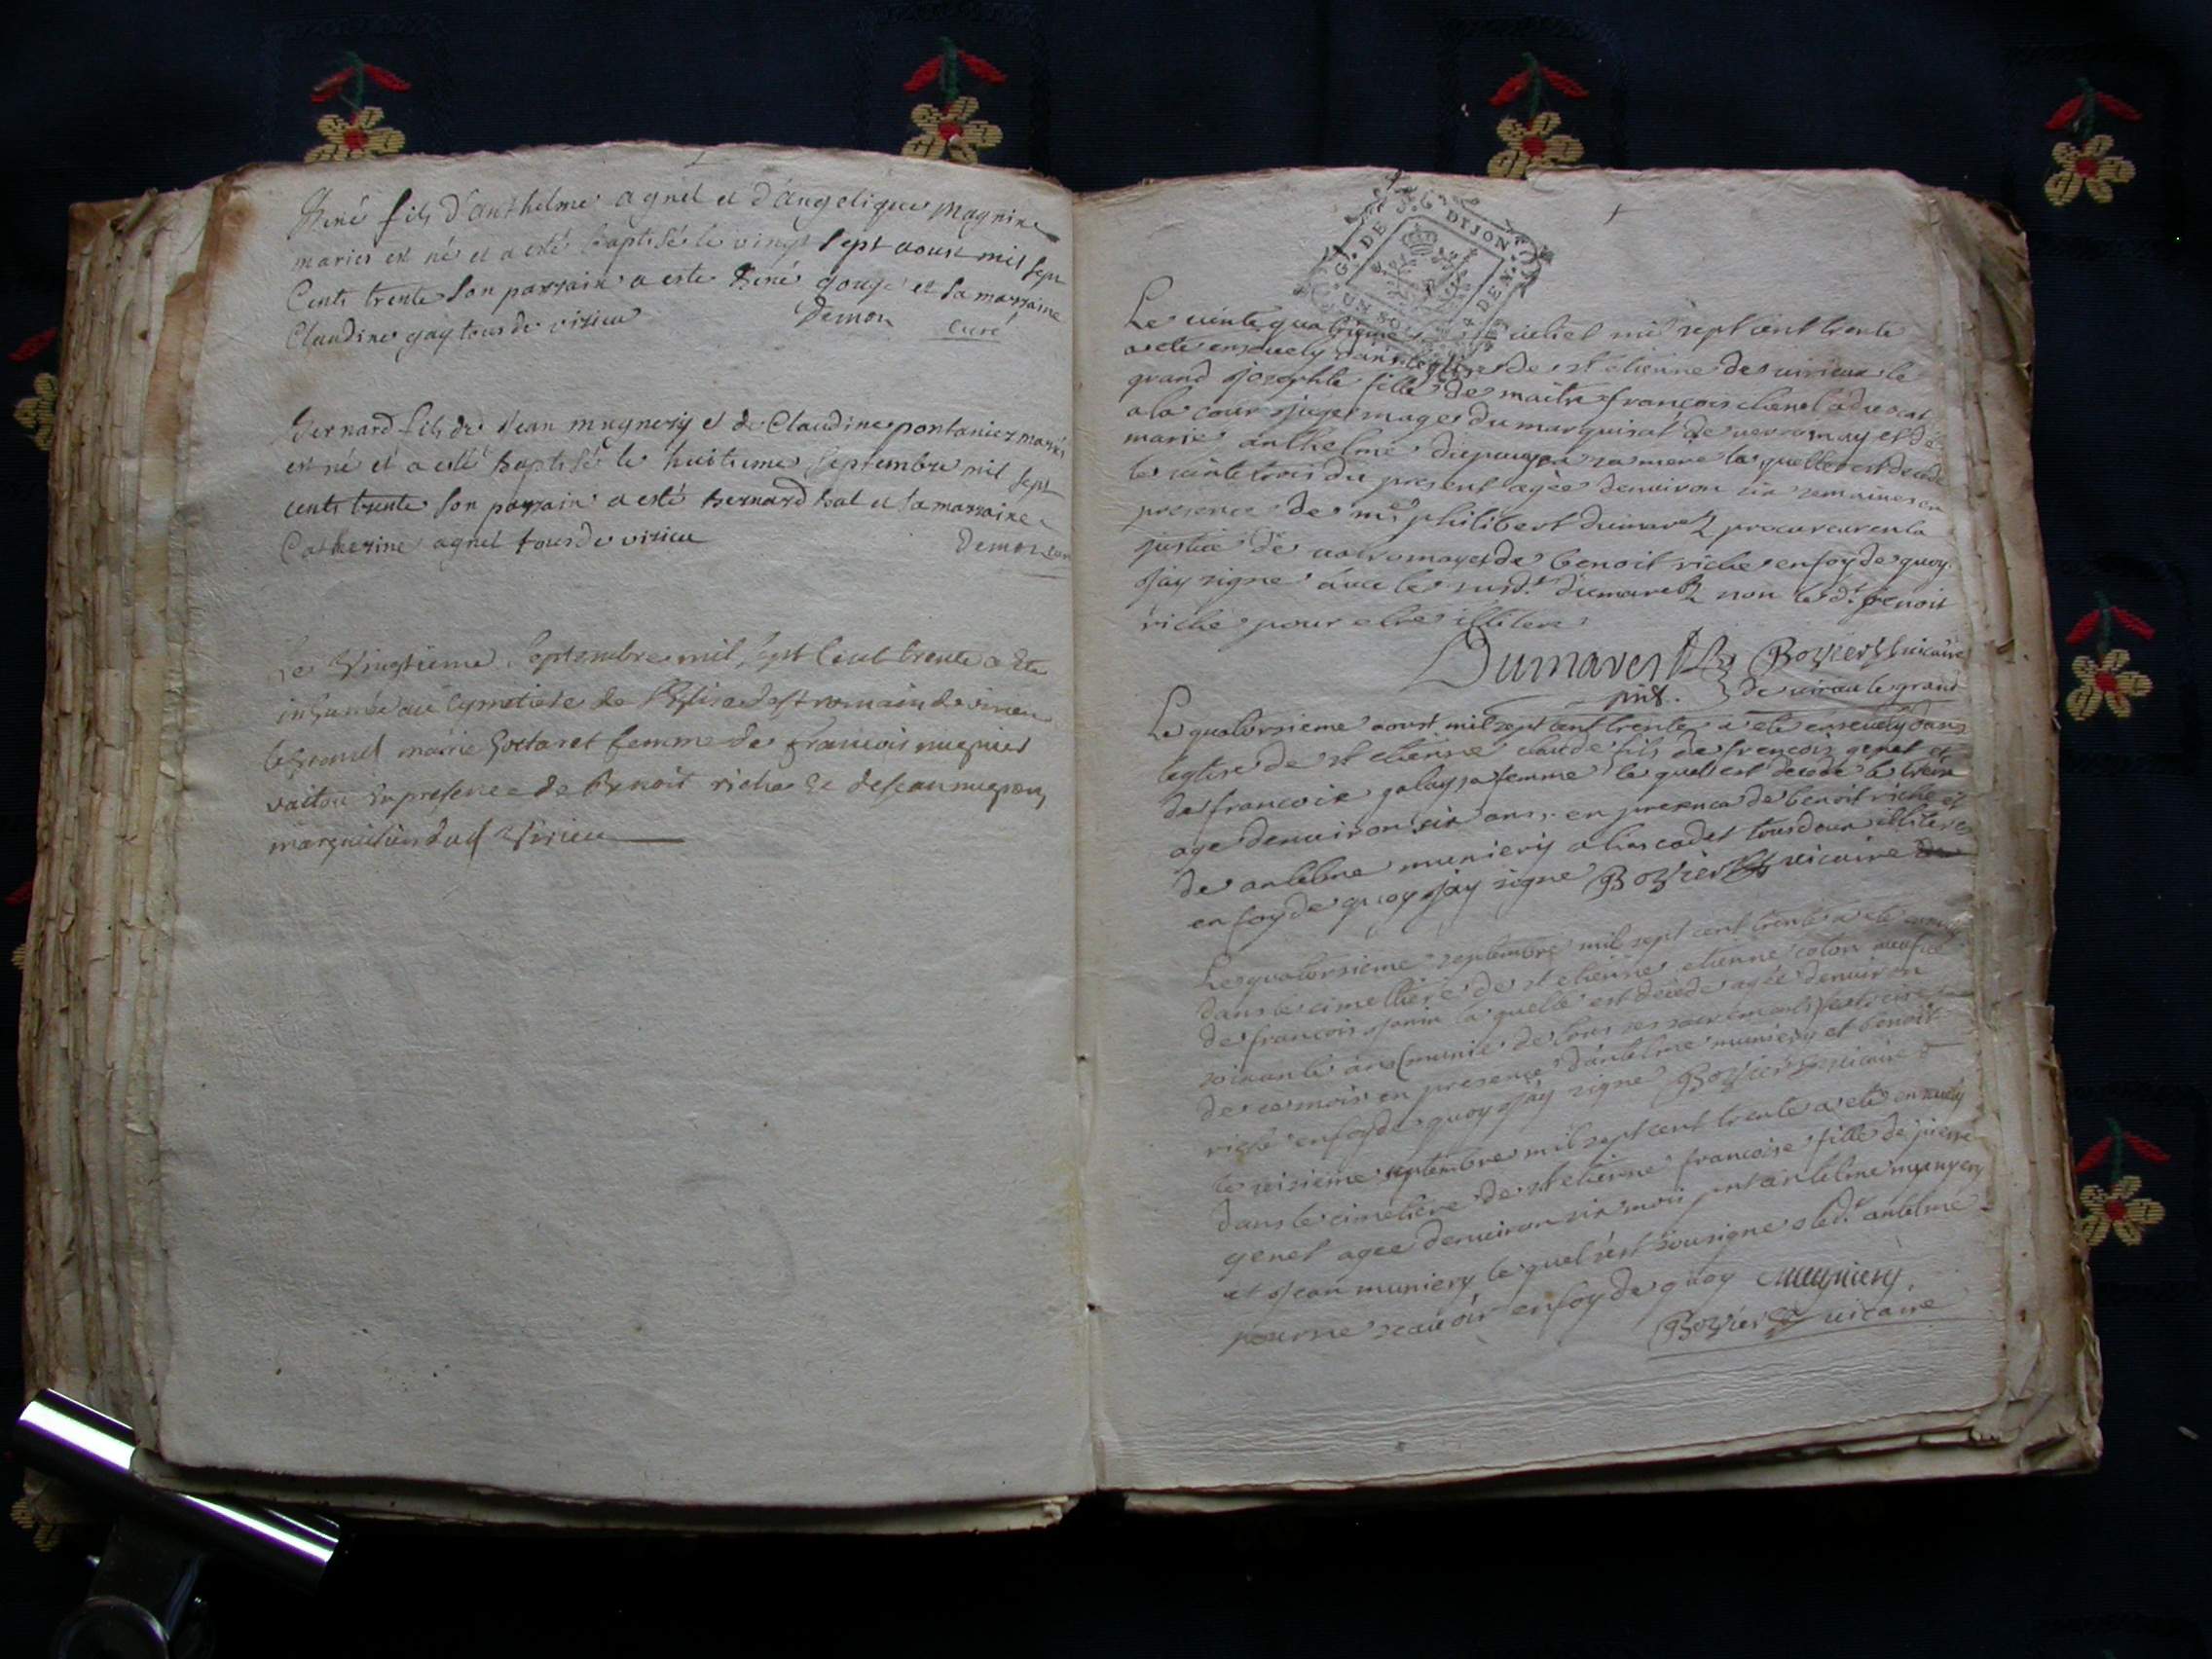 René fils d'anthelme agnel et d'angelique magnin
mariés est né et a esté baptisé le vingt sept aoust mil sept
Cents trente son parrain a esté René gouje et sa marraine
Claudine gay tous de virieu Demon curé
Bernard fils de Jean mugnery et de Claudine pontanier mariés
est né et a esté baptisé le huitieme septembre mil sept
cents trente son parrain a esté bernard bal et sa marraine
Catherine agnel tous de virieu Demon curé
Le vingtieme septembre mil sept cent trente a Ete
inhumée au Cymetiere de l'Eglise de st romain de virieu
le grand marie femme de francois mugnier
en presence de Benoit riche et de jean mugnier
marguillier dud Virieu
G. DE DIJON
UN SOL DEN
Le vinte quatrieme juliet mil sept cent trente
a ete ensevely dans leglise de st etienne de virieux le
grand josephte fille de maitre francois advocat
a la cour juge mage du marquisat de verromay et de
marie anthelme sa mere la quelle est decede
le vinte trois du present agée denviron six semaines en
presence de me philibert dumarest procureur en la
justice de valromay et de benoit riche en foy de quoy
jay signe avec le susd. dumarest non led. benoit
riche pour etre illitere
Dumarest Bozier vicaire
pnt. de virieu le grand
Le quatorsieme aoust mil sept cent trente a ete ensevely dans
leglise de st etienne claude fils de francois genet et
de francoise galay sa femme le quel est decede le treize
age denviron six ans, en presence de benoit riche et
de antelme muniery alias cadet tous deux illiteres
en foy de quoy jay signe Bozier vicaire
Le quatorsieme septembre mil sept cent trente a ete ensevely
dans le cimettiere de st etienne etienne
de francois janin la quelle est decede agée denviron
soixante ans munie de tous ses sacrements
de ce mois en presence dantelme muniery et benoit
riche en foy de quoy jay signe Bozier vicaire
Le seisieme septembre mil sept cent trente a ete ensevely
dans le cimetiere de st etienne francoise fille de pierre
genet agee denviron six mois pnt antelme mugnery
et jean muniery le quel sest sousigne led. antelme
pour ne scavoir en foy de quoy Mugniery.
Bozier vicaire